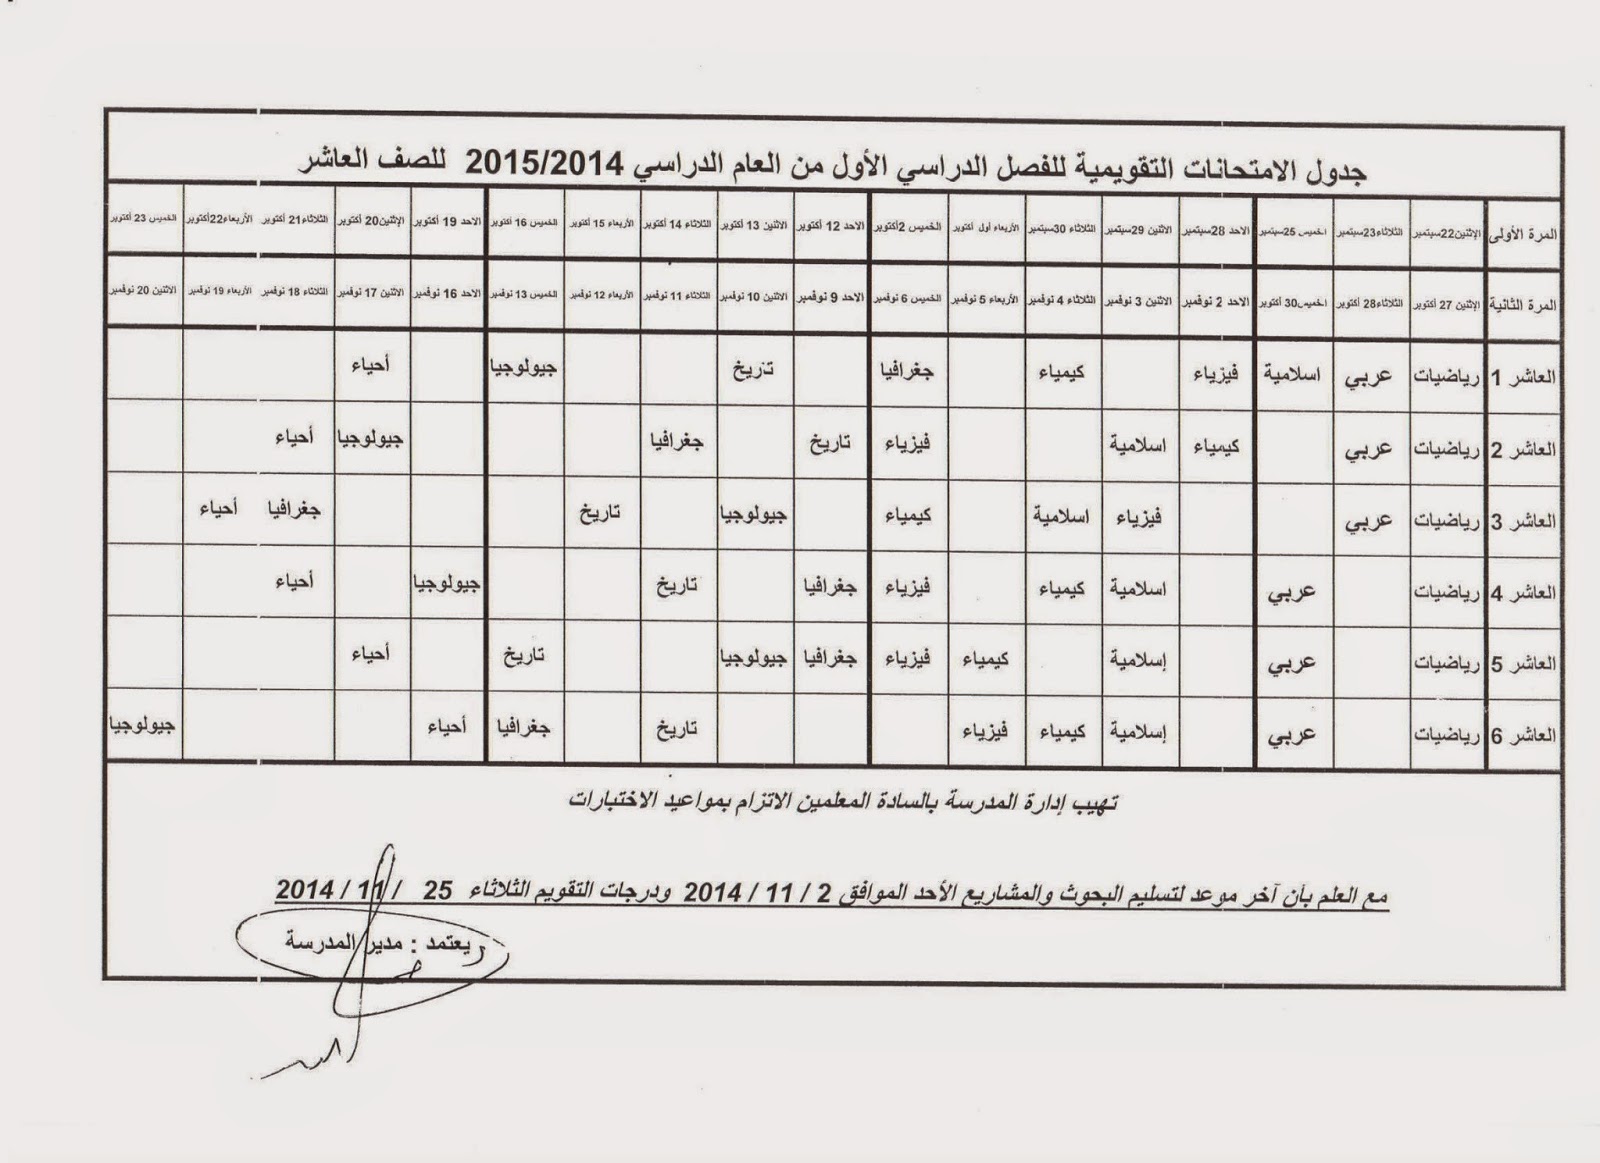 جدول الامتحانات التقويمية للفصل الدراسي الأول من العام الدراسي 2015/2014 للصف العاشر
المرة الأولى الإثنين22سبتمبر الثلاثاء23سبتمبر الخميس 25سبتمبر الاحد 28سبتمبر الاثنين 29سبتمبر الثلاثاء 30سبتمبر الأربعاء أول أكتوبر الخميس 2أكتوبر الاحد 12 أكتوبر الاثنين 13 أكتوبر الثلاثاء 14 أكتوبر الأربعاء 15 أكتوبر الخميس 16 أكتوبر الاحد 19 أكتوبر الإثنين20 أكتوبر الثلاثاء21 أكتوبر الأربعاء22أكتوبر الخميس 23 أكتوبر
المرة الثانية الإثنين 27 أكتوبر الثلاثاء28 أكتوبر الخميس30 أكتوبر الاحد 2 نوفمبر الاثنين 3 نوفمبر الثلاثاء 4 نوفمبر الأربعاء 5 نوفمبر الخميس 6 نوفمبر الاحد 9 نوفمبر الاثنين 10 نوفمبر الثلاثاء 11 نوفمبر الأربعاء 12 نوفمبر الخميس 13 نوفمبر الاحد 16 نوفمبر الاثنين 17 نوفمبر الثلاثاء 18 نوفمبر الأربعاء 19 نوفمبر الاثنين 20 نوفمبر
العاشر 1 رياضيات عربي اسلامية فيزياء كيمياء جغرافيا تاريخ جيولوجيا أحياء
العاشر 2 رياضيات عربي كيمياء اسلامية فيزياء تاريخ جغرافيا جيولوجيا أحياء
العاشر 3 رياضيات عربي فيزياء اسلامية كيمياء جيولوجيا تاريخ جغرافيا أحياء
العاشر 4 رياضيات عربي اسلامية كيمياء فيزياء جغرافيا تاريخ جيولوجيا أحياء
العاشر 5 رياضيات عربي إسلامية كيمياء فيزياء جغرافيا جيولوجيا تاريخ أحياء
العاشر 6 رياضيات عربي إسلامية كيمياء فيزياء تاريخ جغرافيا أحياء جيولوجيا
تهيب إدارة المدرسة بالسادة المعلمين الاتزام بمواعيد الاختبارات
مع العلم بأن آخر موعد لتسليم البحوث والمشاريع الأحد الموافق 2 / 11 / 2014 ودرجات التقويم الثلاثاء 25 / 11 / 2014
يعتمد : مدير المدرسة